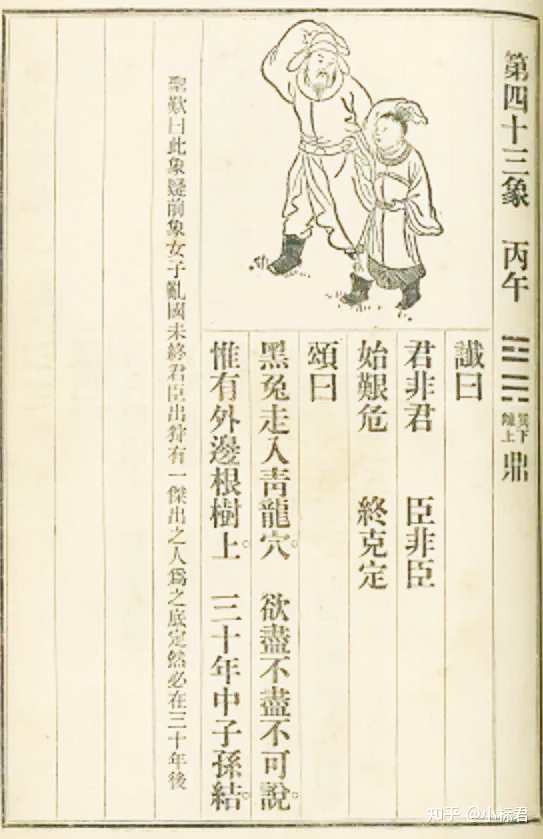 第四十三象 丙午 巽下離上 鼎
讖曰
君非君 臣非臣
始艱危 終克定
頌曰
黑兔走入青龍穴。欲盡不盡不可說。
惟有外邊根樹上。三十年中子孫結。
聖歎曰此象疑前象女子亂國未終君臣出狩有一傑出之人為之底定然必在三十年後
知乎 @小标君